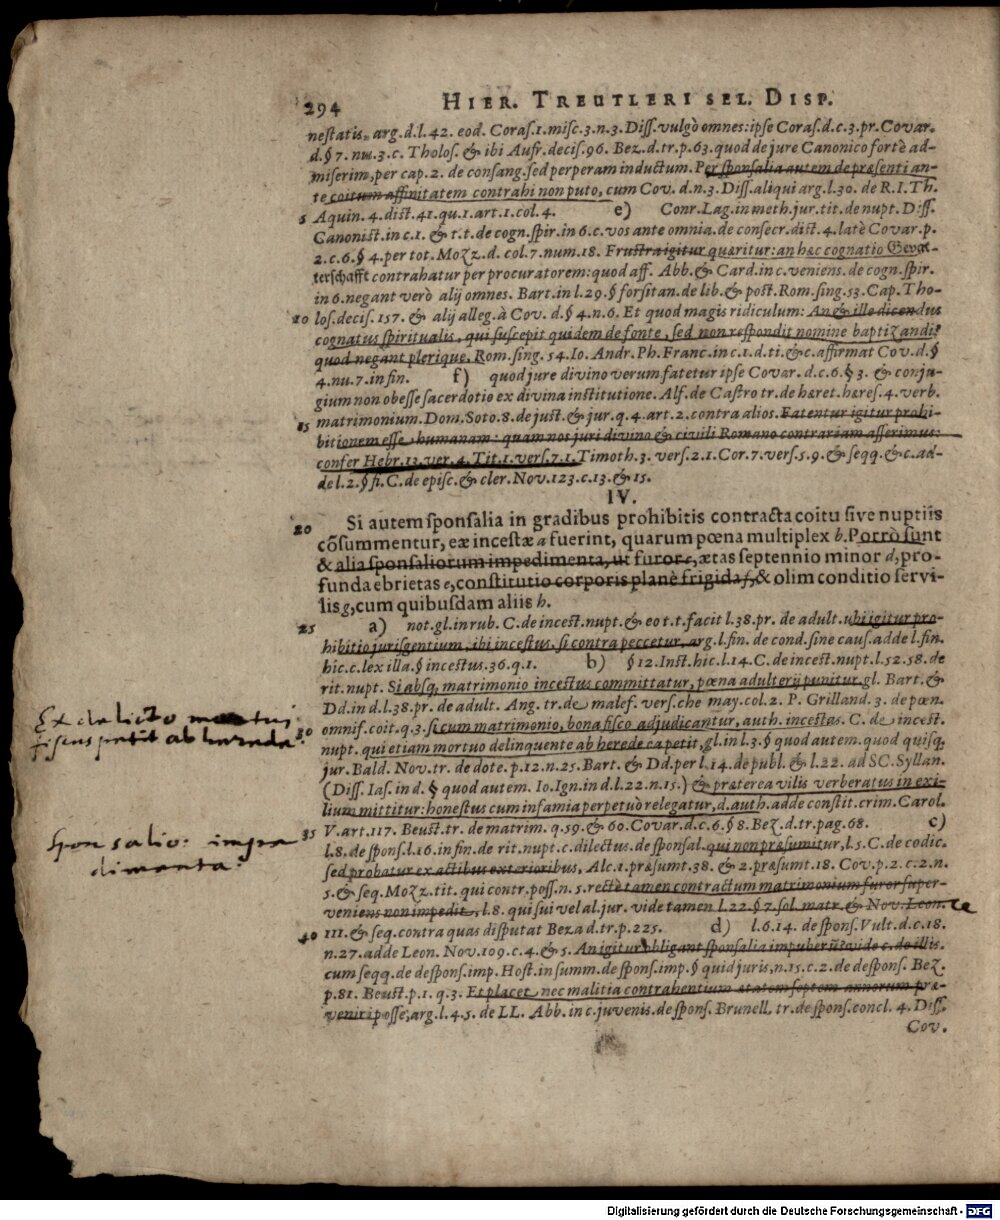 294 HIER. TREUTLERI SEL. DISP.
nestatis, arg. d. l. 42. eod. Coras. 1. misc. 3. n. 3. Diss. vulgò omnes: ipse Coras. d. c. 3. pr. Covar.
d. § 7. nu. 3. c. Tholos. & ibi Aufr. decis. 96. Bez. d. tr. p. 63. quod de jure Canonico fortè ad-
miserim, per cap. 2. de consang. sed perperam inductum. Per sponsalia autem de præsenti an-
te coitum affinitatem contrahi non puto, cum Cov. d. n. 3. Diss. aliqui arg. l. 30. de R. I. Th.
5 Aquin. 4. dist. 41. qu. 1. art. 1. col. 4. e) Conr. Lag. in meth. jur. tit. de nupt. Diss.
Canonist. in c. 1. & t. t. de cogn. spir. in 6. c. vos ante omnia. de consecr. dist. 4. latè Covar. p.
2. c. 6. § 4. per tot. Mozz. d. col. 7. num. 18. Frustra igitur quæritur: an hæc cognatio Gevat-
terschafft contrahatur per procuratorem: quod aff. Abb. & Card. in c. veniens. de cogn. spir.
in 6. negant verò alij omnes. Bart. in l. 29. § forsitan. de lib. & post. Rom. sing. 53. Cap. Tho-
10 los. decis. 157. & alij alleg. à Cov. d. § 4. n. 6. Et quod magis ridiculum: An & ille dicendus
cognatus spiritualis, qui suscepit quidem de fonte, sed non respondit nomine baptizandi?
quod negant plerique, Rom. sing. 54. Io. Andr. Ph. Franc. in c. 1. d. ti. & c. affirmat Cov. d. §
4. nu. 7. in fin. f) quod jure divino verum fatetur ipse Covar. d. c. 6. § 3. & conju-
gium non obesse sacerdotio ex divina institutione. Alf. de Castro tr. de hæret. hæres. 4. verb.
15 matrimonium. Dom. Soto. 8. de just. & jur. q. 4. art. 2. contra alios. Fatentur igitur prohi-
bitionem esse humanam: quam nos juri divino & civili Romano contrariam asserimus:
confer Hebr. 13. ver. 4. Tit. 1. vers. 7. 1. Timoth. 3. vers. 2. 1. Cor. 7. vers. 5. 9. & seqq. & c. ad-
de l. 2. § fi. C. de episc. & cler. Nov. 123. c. 13. & 15.
IV.
20 Si autem sponsalia in gradibus prohibitis contracta coitu sive nuptiis
cõsummentur, ex incestæ a fuerint, quarum pœna multiplex b. Porrò sunt
& alia sponsaliorum impedimenta, ut furor c, ætas septennio minor d, pro-
funda ebrietas e, constitutio corporis planè frigida f, & olim conditio servi-
lis g, cum quibusdam aliis h.
25 a) not. gl. in rub. C. de incest. nupt. & eo t. t. facit l. 38. pr. de adult. ubi igitur pro-
hibitio juris gentium, ibi incestus, si contra peccetur, arg. l. fin. de cond. sine caus. adde l. fin.
hic. c. lex illa. § incestus. 36. q. 1. b) § 12. Inst. hic. l. 14. C. de incest. nupt. l. 52. 58. de
rit. nupt. Si absq; matrimonio incestus committatur, pœna adulterij punitur. gl. Bart. &
Dd. in d. l. 38. pr. de adult. Ang. tr. de malef. vers. che may. col. 2. P. Grilland. 3. de pœn.
30 omnif. coit. q. 3. si cum matrimonio, bona fisco adjudicantur, auth. incestas. C. de incest.
nupt. qui etiam mortuo delinquente ab herede ea petit, gl. in l. 3. § quod autem. quod quisq;
jur. Bald. Nov. tr. de dote. p. 12. n. 25. Bart. & Dd. per l. 14. de publ. & l. 22. ad SC. Syllan.
(Diss. Ias. in d. § quod autem. Io. Ign. in d. l. 22. n. 15.) & præterea vilis verberatus in exi-
lium mittitur: honestus cum infamia perpetuò relegatur, d. auth. adde constit. crim. Carol.
35 V. art. 117. Beust. tr. de matrim. q. 59. & 60. Covar. d. c. 6. § 8. Bez. d. tr. pag. 68. c)
l. 8. de spons. l. 16. in fin. de rit. nupt. c. dilectus. de sponsal. qui non præsumitur, l. 5. C. de codic.
sed probatur ex actibus exterioribus, Alc. 1. præsumt. 38. & 2. præsumt. 18. Cov. p. 2. c. 2. n.
5. & seq. Mozz. tit. qui contr. poss. n. 5. rectè tamen contractum matrimonium furor super-
veniens non impedit, l. 8. qui sui vel al. jur. vide tamen l. 22. § 7. sol. matr. & Nov. Leon.
40 111. & seq. contra quas disputat Beza d. tr. p. 225. d) l. 6. 14. de spons. Vult. d. c. 18.
n. 27. adde Leon. Nov. 109. c. 4. & 5. An igitur obligant sponsalia impuberũ? vide c. de illis.
cum seqq. de despons. imp. Host. in summ. de spons. imp. § quid juris, n. 15. c. 2. de despons. Bez.
p. 81. Beust. p. 1. q. 3. Et placet, nec malitia contrahentium ætatem septem annorum præ-
veniri posse, arg. l. 4. 5. de LL. Abb. in c. juvenis. de spons. Brunell. tr. de spons. concl. 4. Diss.
Cov.
Ex dalicto
fiscus petit ab hæreda
Sponsalio: impe
dimenta
Digitalisierung gefördert durch die Deutsche Forschungsgemeinschaft - DFG